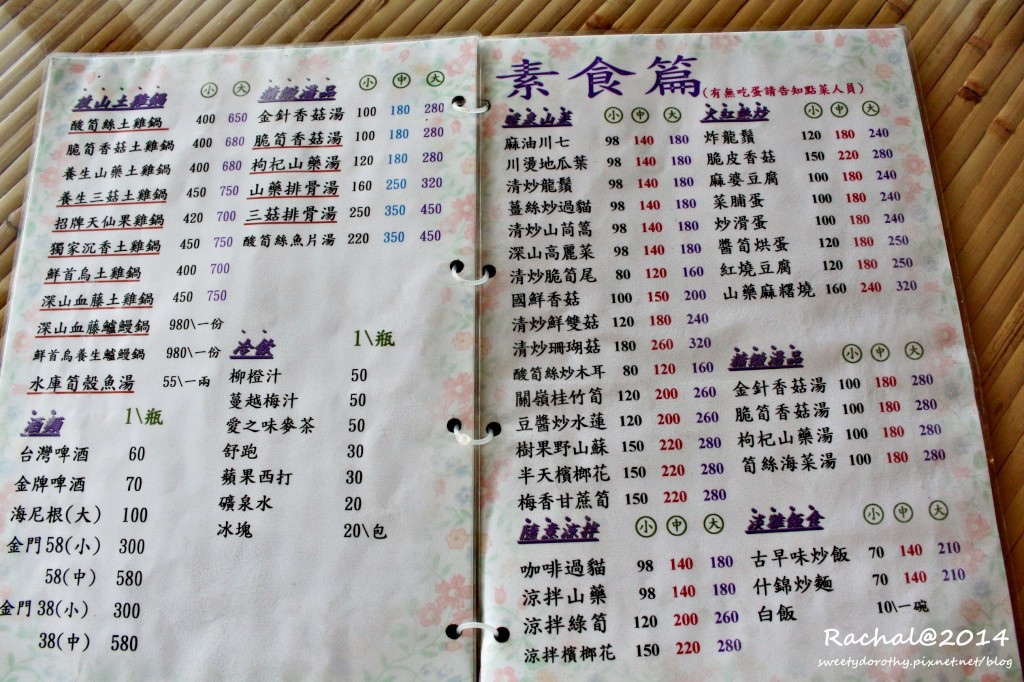 放山土雞鍋 小 大
酸筍絲土雞鍋 400 650
脆筍香菇土雞鍋 400 680
養生山藥土雞鍋 400 680
養生三菇土雞鍋 450 750
招牌天仙果土雞鍋 420 700
獨家沉香土雞鍋 450 750
鮮首烏土雞鍋 400 700
深山血藤土雞鍋 450 750
深山血藤鱸鰻鍋 980\一份
鮮首烏養生鱸鰻鍋 980\一份
水庫筍殼魚湯 55\一兩
精緻湯品 小 中 大
金針香菇湯 100 180 280
脆筍香菇湯 100 180 280
枸杞山藥湯 120 180 280
山藥排骨湯 160 250 320
三菇排骨湯 250 350 450
酸筍絲魚片湯 220 350 450
酒類 1\瓶
台灣啤酒 60
金牌啤酒 70
海尼根(大) 100
金門58(小) 300
58(中) 580
金門38(小) 300
38(中) 580
冷飲 1\瓶
柳橙汁 50
蔓越梅汁 50
愛之味麥茶 50
舒跑 30
蘋果西打 30
礦泉水 20
冰塊 20\包
素食篇(有無吃蛋請告知點菜人員)
山菜 小 中 大
麻油川七 98 140 180
川燙地瓜葉 98 140 180
清炒龍鬚 98 140 180
薑絲炒過貓 98 140 180
清炒山茼蒿 98 140 180
深山高麗菜 98 140 180
清炒脆筍尾 80 120 160
國鮮香菇 100 150 200
清炒鮮雙菇 120 180 240
清炒珊瑚菇 180 260 320
酸筍絲炒木耳 80 120 160
關嶺桂竹筍 120 200 260
豆醬炒水蓮 120 200 260
樹果野山蘇 150 220 280
半天檳榔花 150 220 280
梅香甘蔗筍 150 220 280
大紅熱炒 小 中 大
炸龍鬚 120 180 240
脆皮香菇 150 220 280
麻婆豆腐 100 180 240
菜脯蛋 100 180 240
炒滑蛋 100 180 240
醬筍烘蛋 120 180 250
紅燒豆腐 120 180 250
山藥麻糬燒 160 240 320
精緻湯品 小 中 大
金針香菇湯 100 180 280
脆筍香菇湯 100 180 280
枸杞山藥湯 100 180 280
筍絲海菜湯 100 180 280
隨意涼拌 小 中 大
咖啡過貓 98 140 180
涼拌山藥 98 140 180
涼拌綠筍 120 200 260
涼拌檳榔花 150 220 280
飯食 小 中 大
古早味炒飯 70 140 210
什錦炒麵 70 140 210
白飯 10\一碗
Rachal@2014
sweetydorothy.pixnet.net/blog